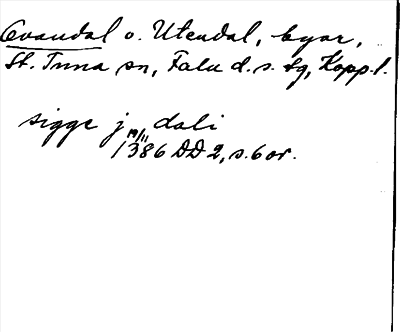 Ovandal o. Utendal, byar,
St. Tuna sn, Falu d. s. lg, Kopp. l.
sigge j dali
19/11 1386 DD 2, s. 6 or.